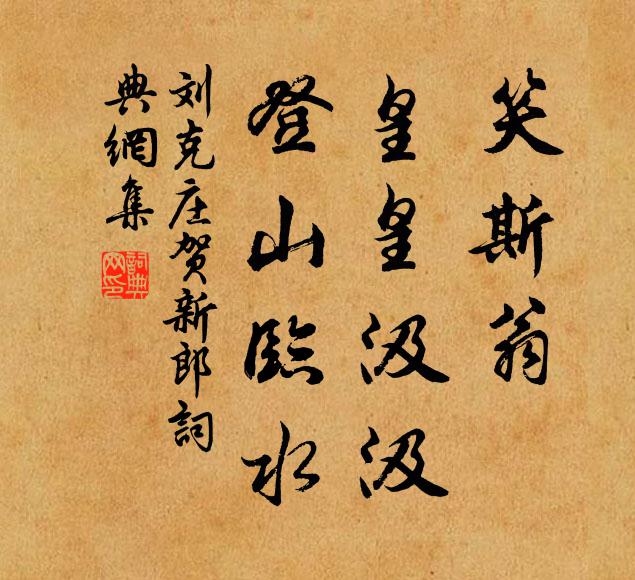 笑斯翁
皇皇汲汲
登山臨水
刘克庄贺新郎詞
典網集
詞典網印